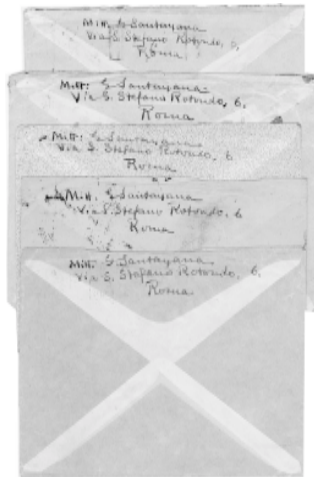 Mitt. G Santayana
Via S. Stefano Rotondo, 6,
Roma
Mitt: G Santayana
Via S. Stefano Rotondo, 6,
Roma
Mitt: G Santayana
Via S. Stefano Rotondo, 6
Roma
Mitt. G Santayana
Via S. Stefano Rotondo, 6
Roma
Mitt. G Santayana
Via S. Stefano Rotondo, 6,
Roma